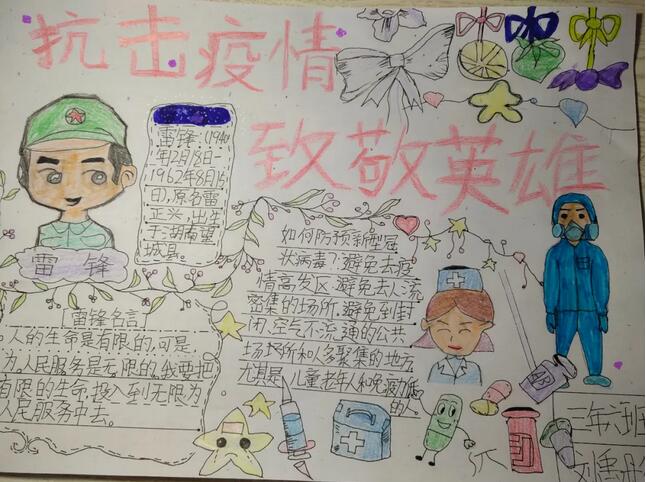 抗击疫情
致敬英雄
雷锋:(1940
年2月18日-
1962年8月15
日),原名雷
正兴,出生
于:湖南望
城县。
雷锋
[雷锋名言]
人的生命是有限的,可是
为人民服务是无限的,我要把
有限的生命,投入到无限为
人民服务中去。
如何防预新型冠
状病毒?:避免去疫
情高发区、避免去人流
密集的场所、避免到封
闭、空气不流通的公共
场所和人多聚集的地方
尤其是儿童老年人和免疫力低
的人。
三年六班